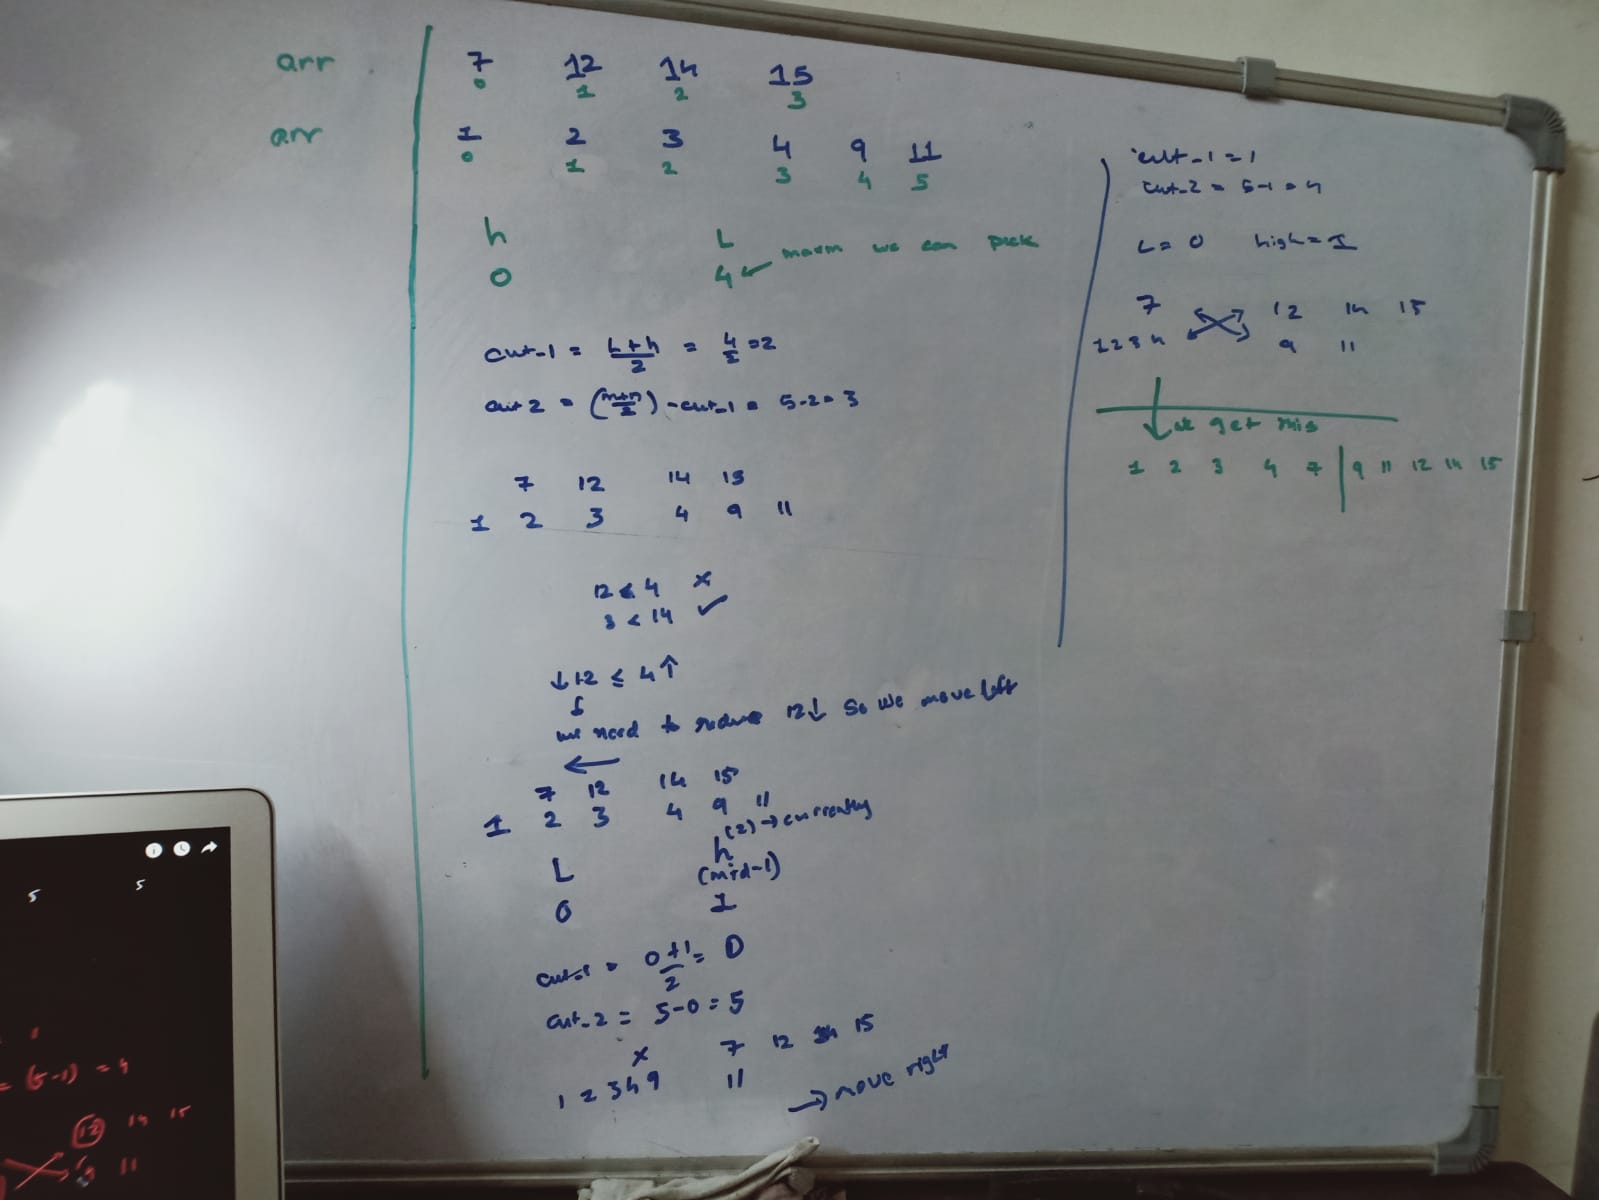 arr 7 12 14 15
0 1 2 3
arr 1 2 3 4 9 11
0 1 2 3 4 5
h L
0 4 ✓ maxm we can pick
cut-1 = L+h/2 = 4/2 = 2
cut 2 = (m+n/2) - cut-1 = 5-2 = 3
7 12 14 15
1 2 3 4 9 11
12 ≤ 4 ×
3 < 14 ✓
↓12 ≤ 4↑
we need to reduce 12↓ so we move left
←
7 12 14 15
1 2 3 4 9 11
(2)→currently
L h
(mid-1)
0 1
cut-1 = 0+1/2 = 0
cut-2 = 5-0 = 5
× 7 12 14 15
1 2 3 4 9 11
→ move right
cut-1 = 1
cut-2 = 5-1 = 4
L = 0 high = 1
7 12 14 15
1 2 3 4 9 11
↓ we get this
1 2 3 4 7 | 9 11 12 14 15
5 5
1
= (5-1) = 4
12 14 15
9 11